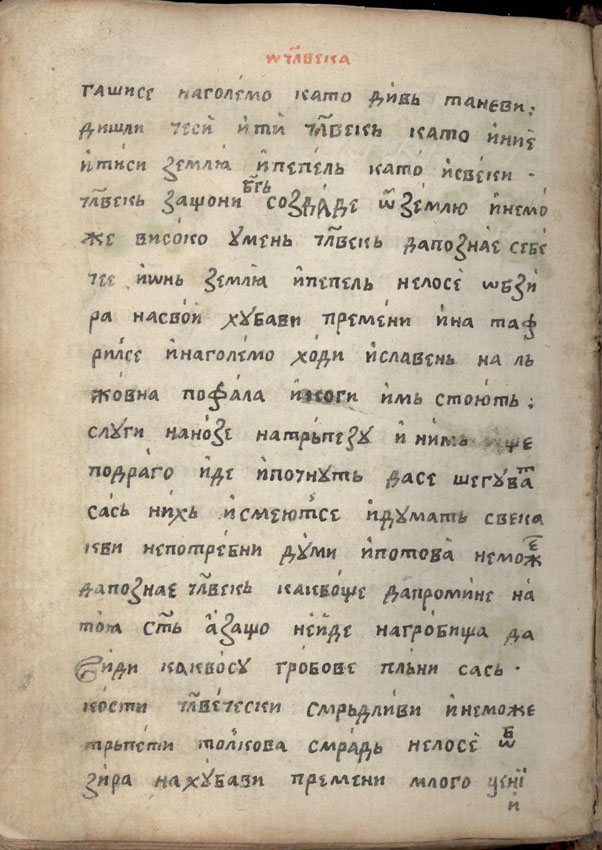 ѡ чл҃века
гашисе наголѐмо като дивь таневи;
дишли теси̇̀ и҆ти̇̀ чл҃векь като и҆ниѐ
и҆тѝси землꙗ̀ и҆пепель като̀ и҆свеки ·
чл҃векь защони бг҃ь созда́де ѿ зе́млю и҆немо́
же висо́ко ꙋмень чл҃векь дапозна́е себѐ
чее и҆ѡнь землꙗ̀ и҆пепель нелосѐ ѡбзѝ
ра насвоѝ хꙋбави премени и҆на таф
рилсе и҆наголѐмо хо́ди и҆славень на ль
жо́вна пофа́ла и҆ многи имь стою́ть;
слꙋги нано́зе натрьпезꙋ и҆ нимь ище
подра́го и҆де и҆почнꙋть дасе шегꙋва̀т
сась нихь и҆смею́тсе и҆дꙋмать свека
кви непотре́бни дꙋ́ми и҆потова̀ немо́же
дапозна́е чл҃векь какво́ще дапроми́не на̀
тоꙗ ст҃ь а҆защо неи҆́де нагробища да
види какво́сꙋ гробове пль́ни сась ·
ко́сти чл҃ве́чески смрьдли́ви и҆неможе
трьпе́ти толкова смрадь нелосѐ ѡб
зи́ра нахꙋ́бави премени млого цени
и